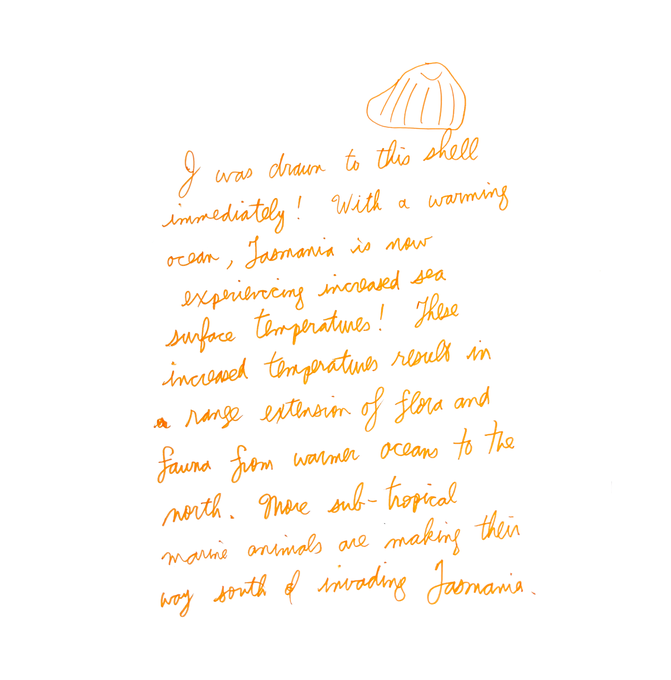 I was drawn to this shell
immediately! With a warming
ocean, Tasmania is now
experiencing increased sea
surface temperatures! These
increased temperatures result in
range extension of flora and
fauna from warmer oceans to the
north. More sub-tropical
marine animals are making their
way south & invading Tasmania.